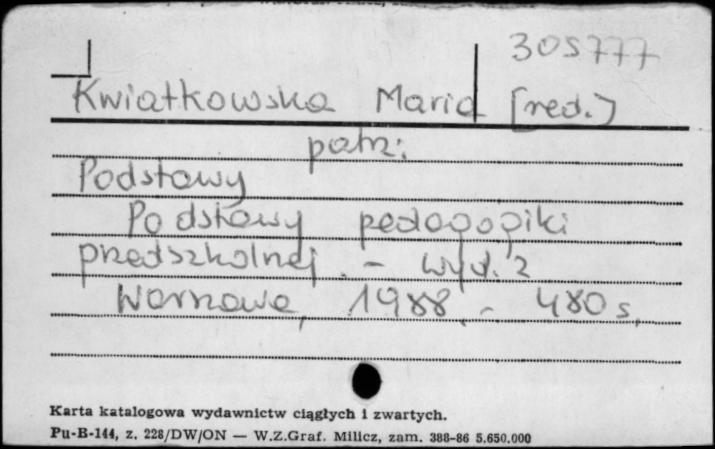 305777
Kwiatkowska Maria [red.]
patrz:
Podstawy
Podstawy pedagogiki
przedszkolnej. - Wyd. 2
Warszawa, 1988. - 480 s.
Karta katalogowa wydawnictw ciągłych i zwartych.
Pu-B-144, z. 228/DW/ON — W.Z.Graf. Milicz, zam. 388-86 5.650.000